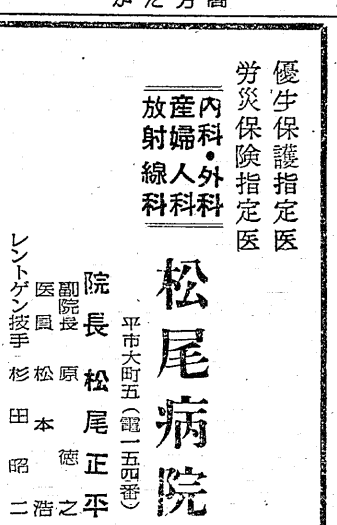 優生保護指定医
労災保険指定医
内科・外科
産婦人科
放射線科
松尾病院
平市大町五(電一五四番)
院長 松尾正平
副院長 原徳之
医員 松本浩
レントゲン技手 杉田昭二